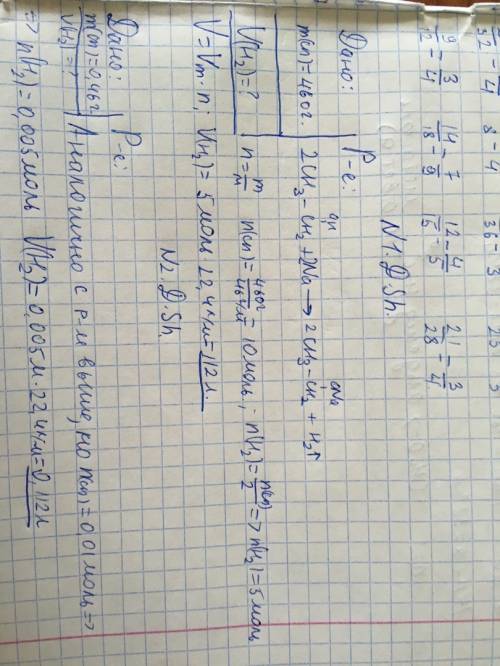 9/12 - 3/4   14/18 - 7/9   12/15 - 4/5   21/28 = 3/4
N1. D.Sh.
Дано:
m(сп)=460г.
V(H₂)=?
Р-е:
2CH₃-CH₂OH+2Na → 2CH₃-CH₂ONa + H₂↑
n=m/M   n(сп)= = 10 моль; n(H₂)=n(сп)/2 => n(H₂)=5 моль
V=Vm·n; V(H₂)= 5 моль · 22,4 л/м=112л.
N2. D.Sh.
Дано:
m(сп)=0,46г.
V(H₂)=?
Р-е:
Аналогично с р-м выше, но n(сп)=0,01 моль =>
=> n(H₂)=0,005моль V(H₂)=0,005м·22,4л/м=0,112л